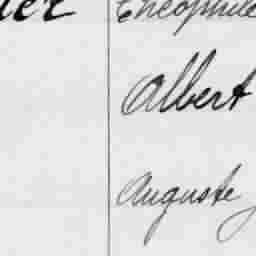 Théophile
Albert
Auguste